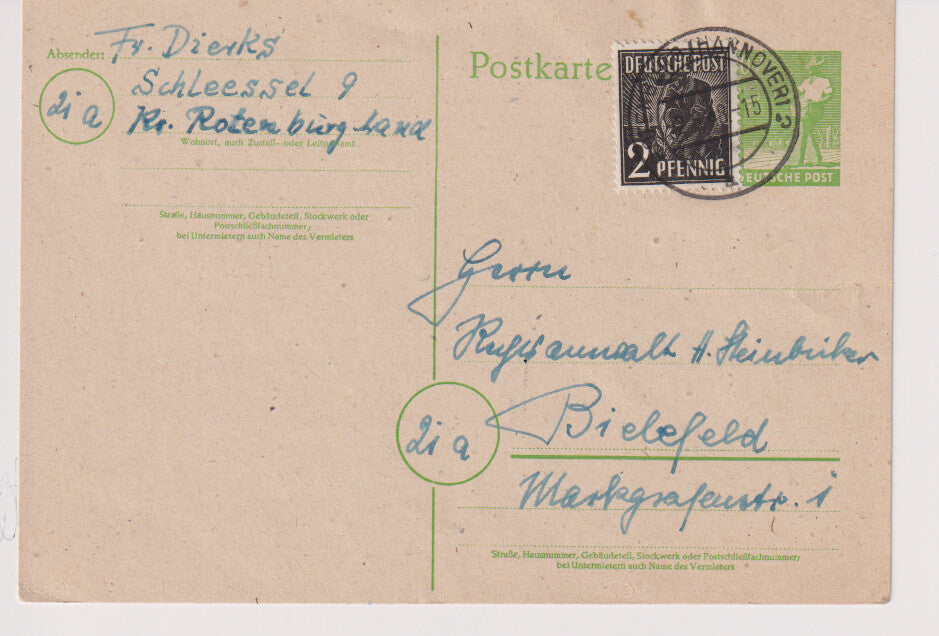 Absender: Fr. Dierks
Schleessel 9
21a Kr. Rotenburg Land
Wohnort, auch Zustell- oder Leitpostamt
Straße, Hausnummer, Gebäudeteil, Stockwerk oder
Postschließfachnummer;
bei Untermietern auch Name des Vermieters
Postkarte
DEUTSCHE POST
2 PFENNIG
(HANNOVER) 2
-15
a
DEUTSCHE POST
Herrn
Rechtsanwalt A. Steinbrinker
21a Bielefeld
Markgrafenstr. 1
Straße, Hausnummer, Gebäudeteil, Stockwerk oder Postschließfachnummer;
bei Untermietern auch Name des Vermieters